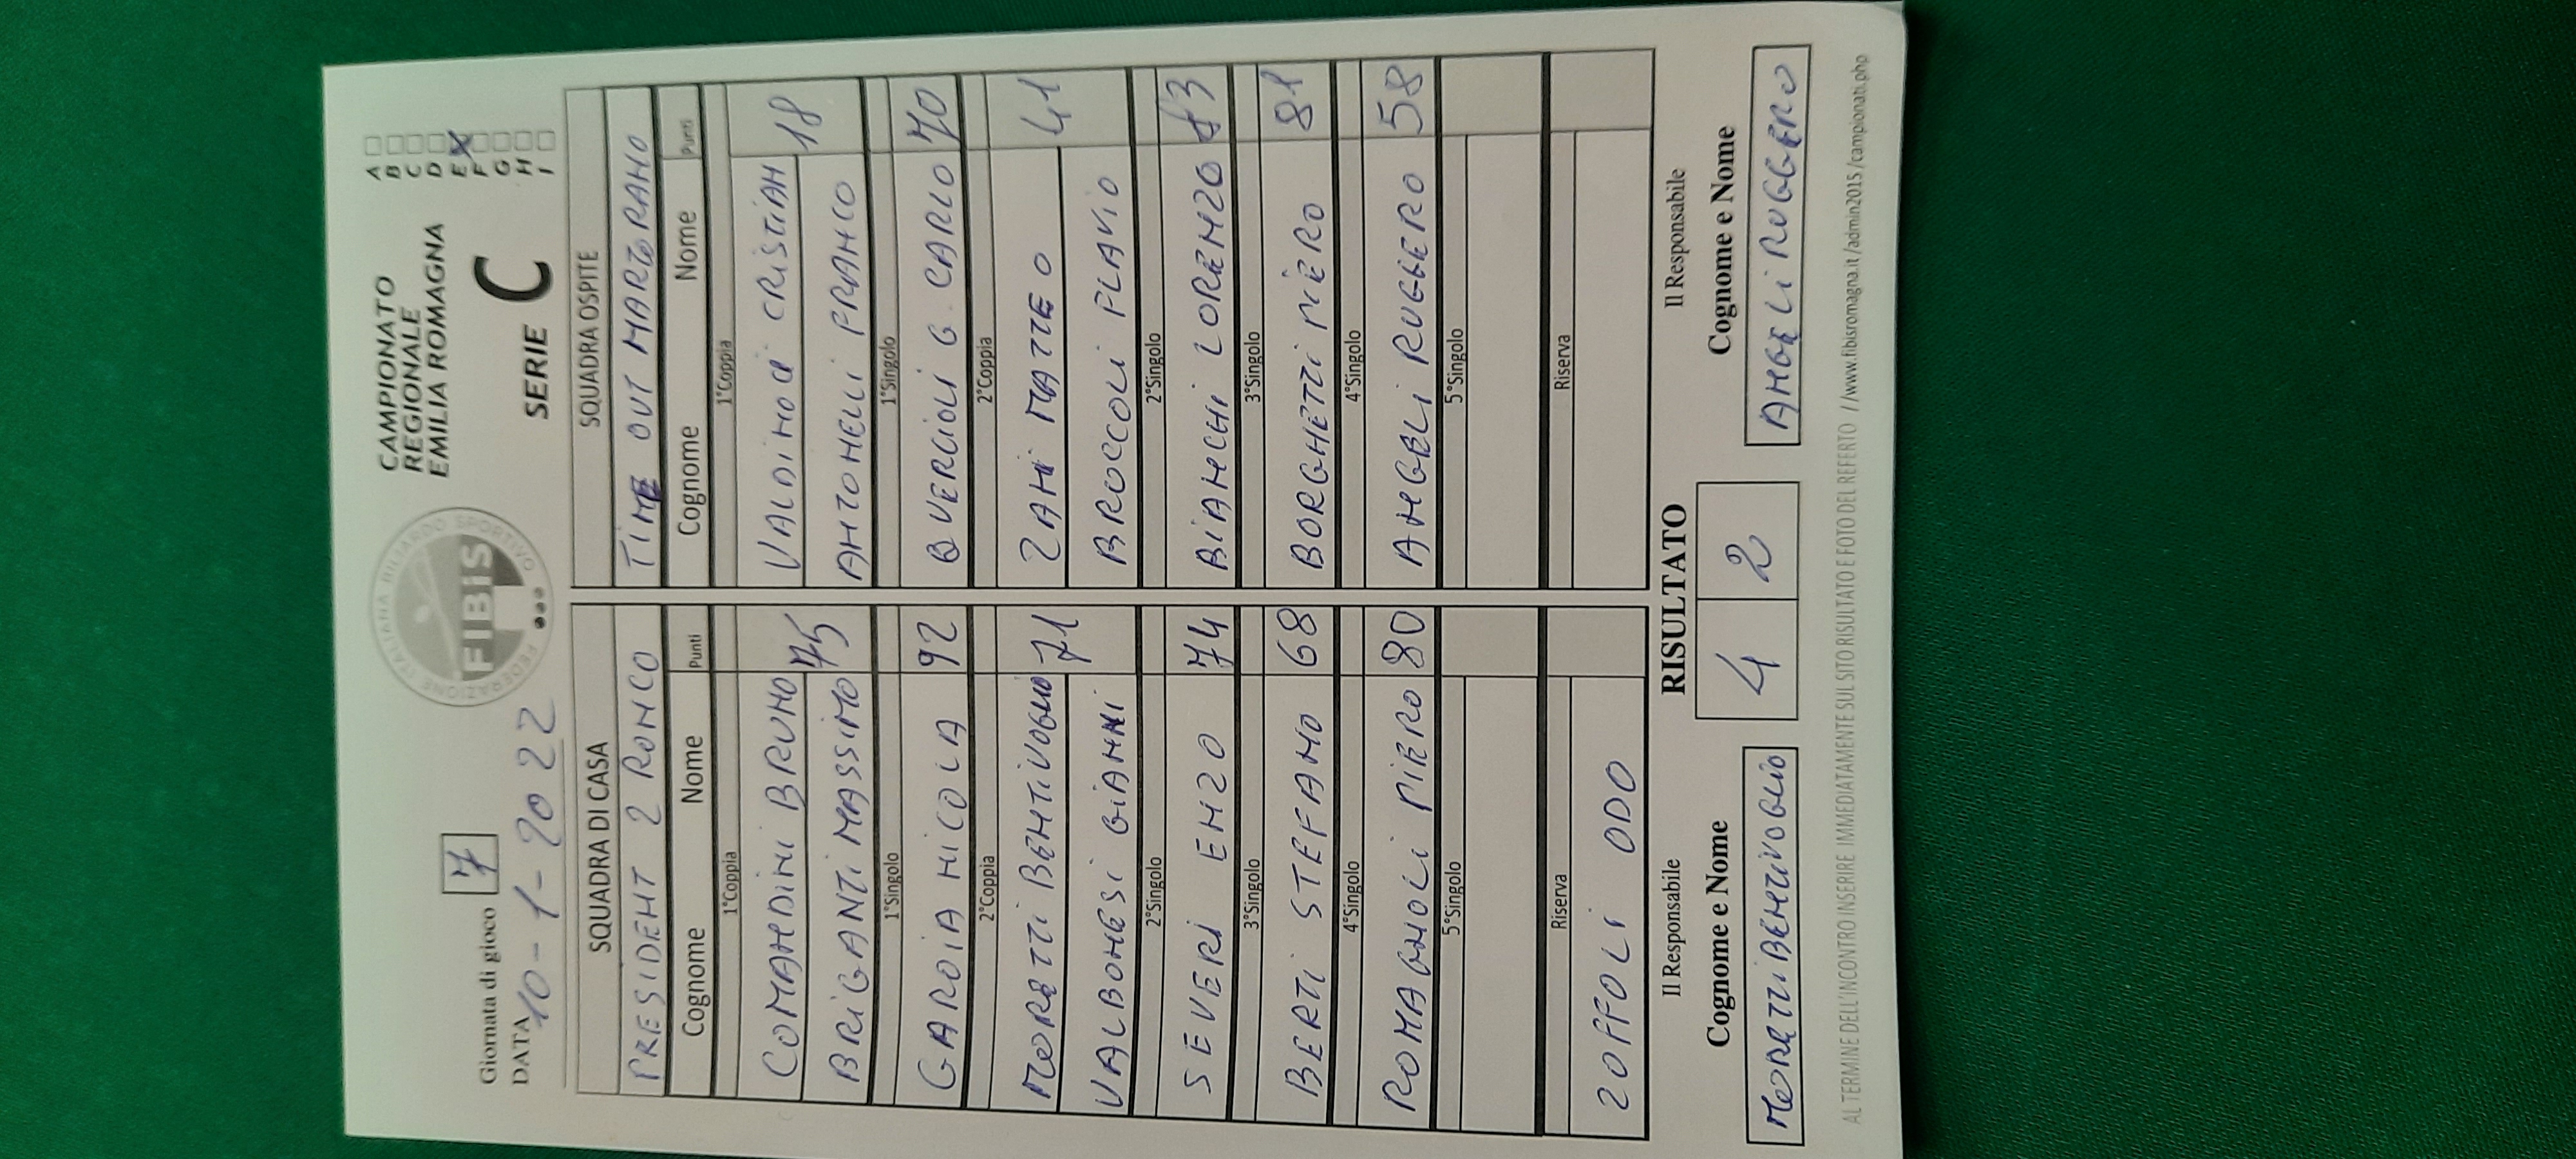 Giornata di gioco 7
DATA 10-1-2022
FEDERAZIONE ITALIANA BILIARDO SPORTIVO
FIBiS
CAMPIONATO
REGIONALE
EMILIA ROMAGNA
SERIE C
A
B
C
D
E X
F
G
H
I
SQUADRA DI CASA SQUADRA OSPITE
PRESIDENT 2 RONCO TIME OUT MARTORANO
Cognome Nome Punti Cognome Nome Punti
1°Coppia 1°Coppia
COMANDINI BRUNO 75 VALDINOCI CRISTIAN 18
BRIGANTI MASSIMO ANTONELLI FRANCO
1°Singolo 1°Singolo
GAROIA NICOLA 92 QUERCIOLI G. CARLO 70
2°Coppia 2°Coppia
MORETTI BENTIVOGLIO 71 ZANI MATTEO 41
VALBONESI GIANNI BROCCOLI FLAVIO
2°Singolo 2°Singolo
SEVERI ENZO 74 BIANCHI LORENZO
3°Singolo 3°Singolo
BERTI STEFANO 68 BORGHETTI PIERO 81
4°Singolo 4°Singolo
ROMAGNOLI PIERO 80 ANGELI RUGGERO 58
5°Singolo 5°Singolo
Riserva Riserva
ZOFFOLI ODO
Il Responsabile RISULTATO Il Responsabile
Cognome e Nome 4 2 Cognome e Nome
MORETTI BENTIVOGLIO ANGELI RUGGERO
AL TERMINE DELL'INCONTRO INSERIRE IMMEDIATAMENTE SUL SITO RISULTATO E FOTO DEL REFERTO //www.fibisromagna.it/admin2015/campionati.php